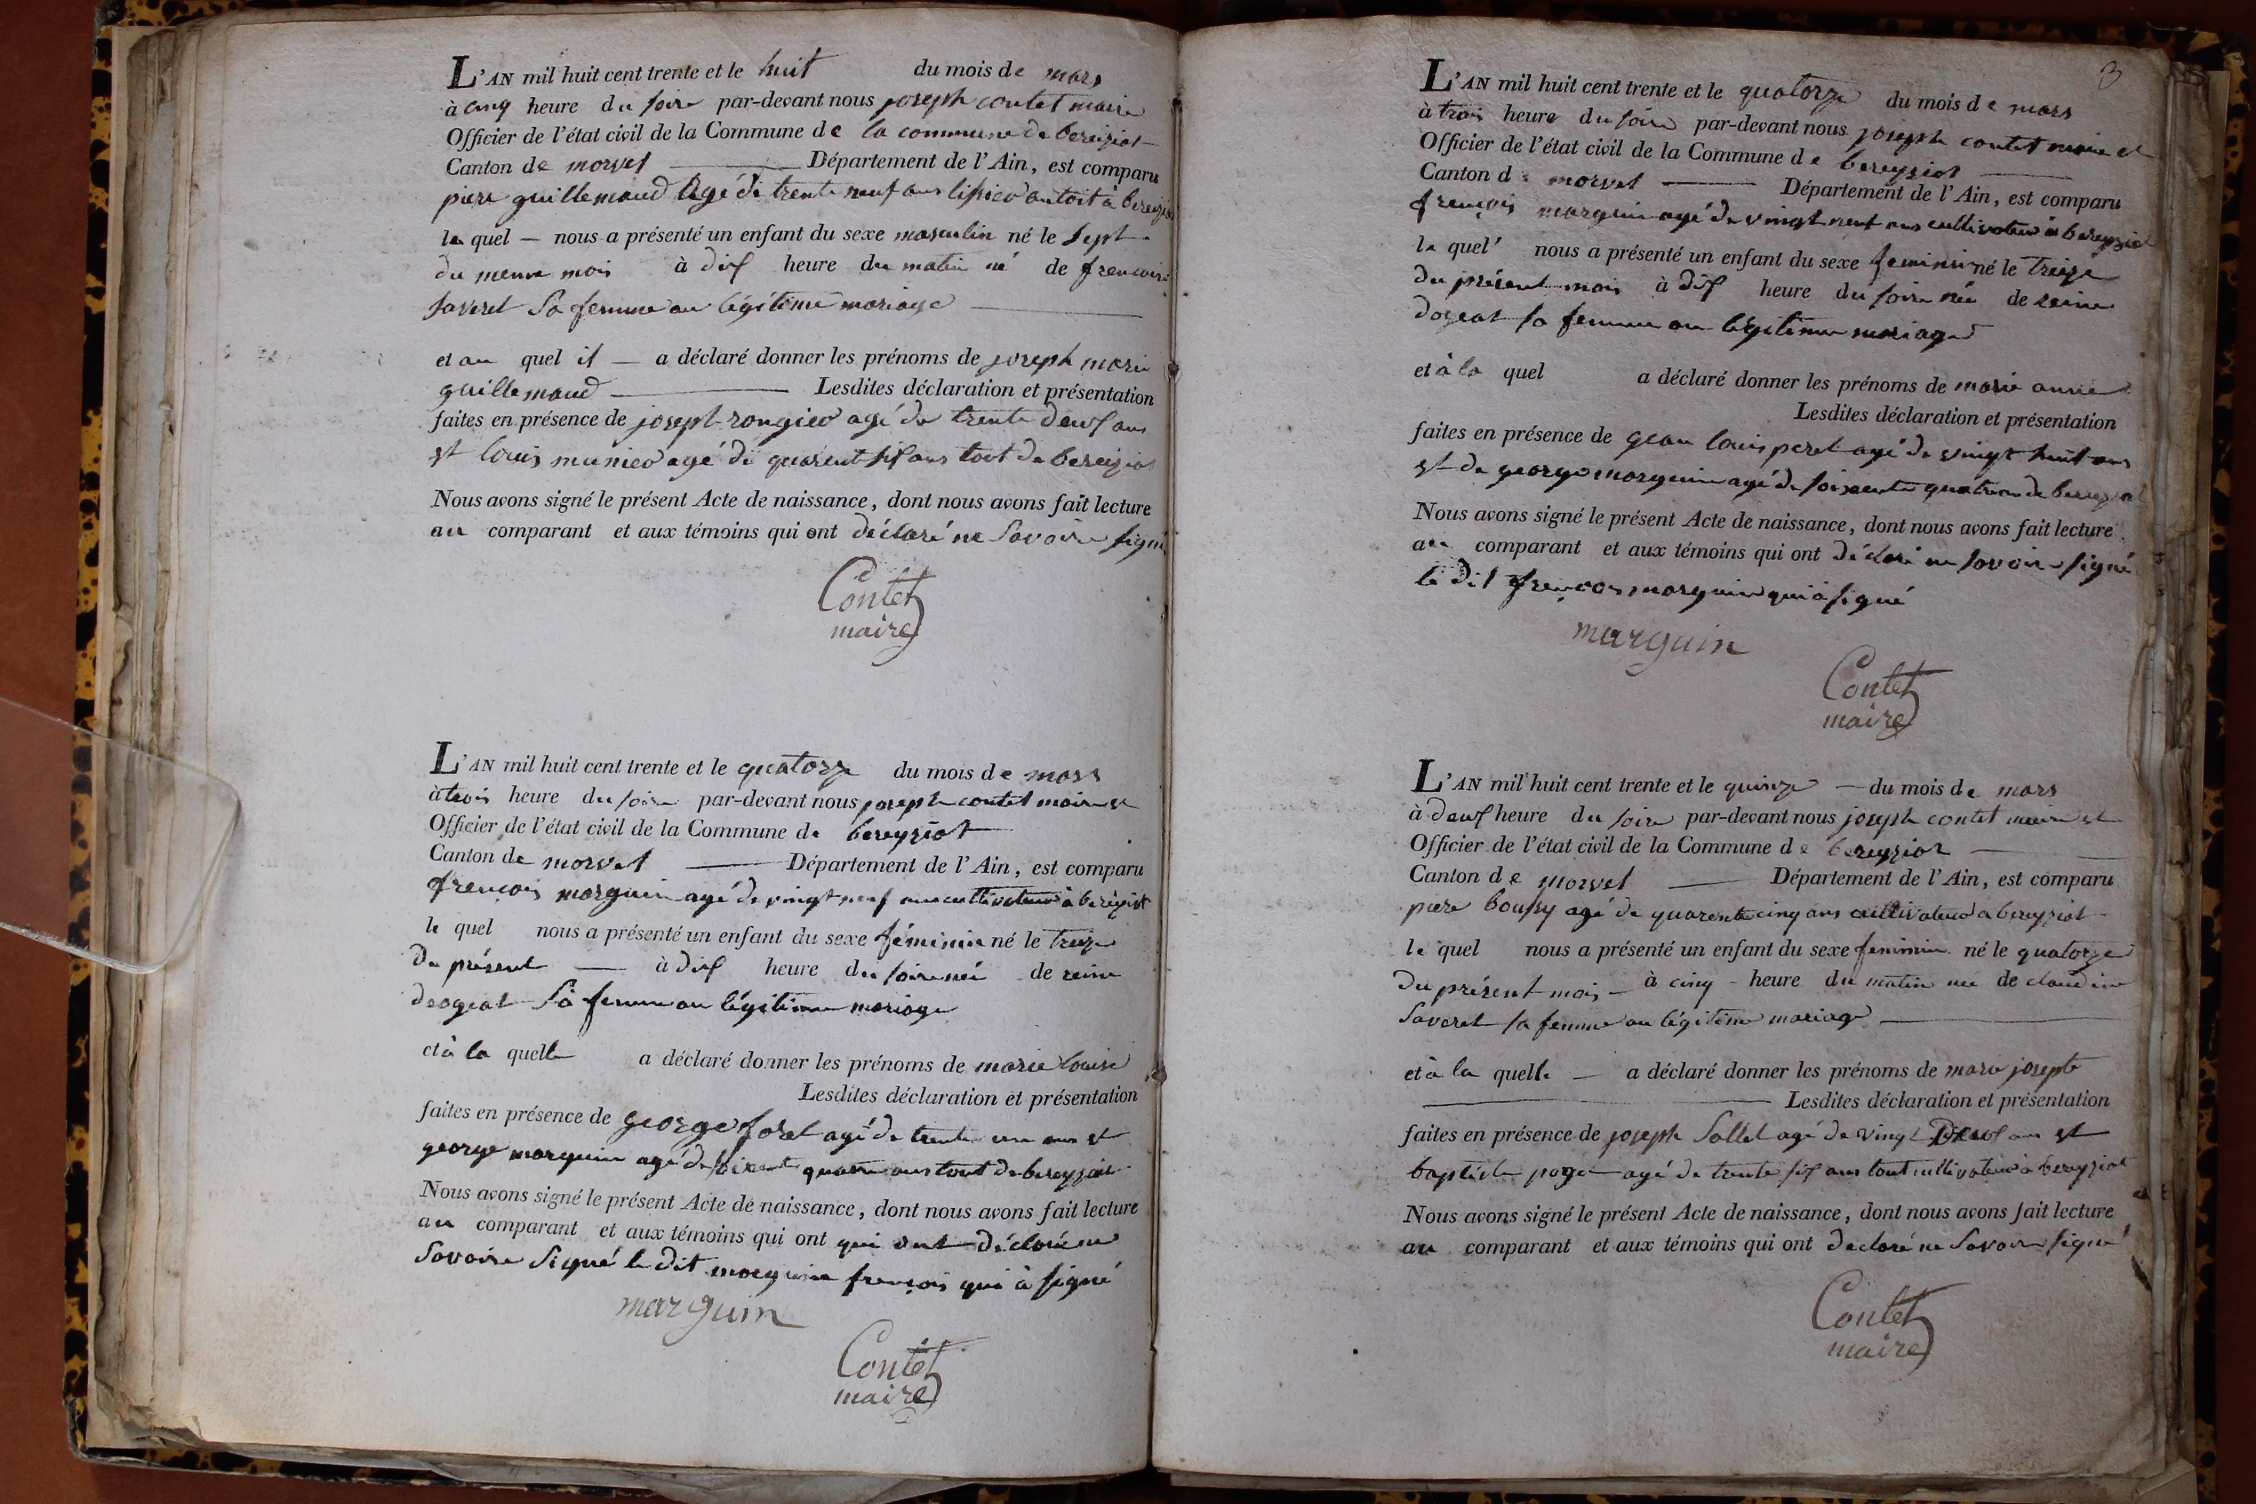 L'AN mil huit cent trente et le huit du mois de mars
à cinq heure du soire par-devant nous joseph contet maire
Officier de l'état civil de la Commune de la commune de bereiziat
Canton de morvel Département de l'Ain, est comparu
piere guillemaud Agé de trente neuf ans à bereyziat
le quel nous a présenté un enfant du sexe masculin né le sept
du meme mois à dix heure du matin né de frencoise
saveret sa femme an légitime mariage
et au quel il a déclaré donner les prénoms de joseph marie
guillemaud Lesdites déclaration et présentation
faites en présence de joseph rongieo agé de trente deux ans
et louis munieo agé de quarent six ans tout de bereiziat
Nous avons signé le présent Acte de naissance, dont nous avons fait lecture
au comparant et aux témoins qui ont déclaré ne savoire signé
Contet
maire
L'AN mil huit cent trente et le quatorze du mois de mars
à trois heure du soire par-devant nous joseph contet maire et
Officier de l'état civil de la Commune de bereyziat
Canton de morvel Département de l'Ain, est comparu
frençois marguin agé de vingt neuf ans cultivateur à bereyziat
le quel nous a présenté un enfant du sexe féminin né le treize
du présent à dix heure du soire née de reine
deogeat sa femme an légitime mariage
et à la quelle a déclaré donner les prénoms de marie louise
Lesdites déclaration et présentation
faites en présence de george foret agé de trente un ans et
george marguin agé de soixente quatre ans tout de bereyziat
Nous avons signé le présent Acte de naissance, dont nous avons fait lecture
au comparant et aux témoins qui ont qui ont déclaré ne
savoire signé le dit marguin frençois qui à signé
marguin
Contet
maire
3
L'AN mil huit cent trente et le quatorze du mois de mars
à trois heure du soire par-devant nous joseph contet maire et
Officier de l'état civil de la Commune de bereyziat
Canton de morvel Département de l'Ain, est comparu
frençois marguin agé de vingt neuf ans cultivateur à bereyziat
le quel nous a présenté un enfant du sexe feminin né le treize
du présent mois à dix heure du soire née de reine
dogeat sa femme an légitime mariage
et à la quel a déclaré donner les prénoms de marie anne
Lesdites déclaration et présentation
faites en présence de gean louis peret agé de vingt huit ans
et de george marguin agé de soixente quatre ans de bereyziat
Nous avons signé le présent Acte de naissance, dont nous avons fait lecture
au comparant et aux témoins qui ont déclaré ne savoire signé
le dit françois marguin qui à signé
marguin
Contet
maire
L'AN mil huit cent trente et le quinze du mois de mars
à deux heure du soire par-devant nous joseph contet maire et
Officier de l'état civil de la Commune de bereyziat
Canton de morvel Département de l'Ain, est comparu
piere boussy agé de quarente cinq ans cultivateur a bereyziat
le quel nous a présenté un enfant du sexe feminin né le quatorze
du présent mois à cinq heure du matin née de claudine
savaret sa femme an légitime mariage
et à la quelle a déclaré donner les prénoms de marie josepte
Lesdites déclaration et présentation
faites en présence de joseph sallet agé de vingt deux ans et
baptiste poget agé de trente six ans tout cultivateur à bereyziat
Nous avons signé le présent Acte de naissance, dont nous avons fait lecture
au comparant et aux témoins qui ont declaré ne savoire signé
Contet
maire